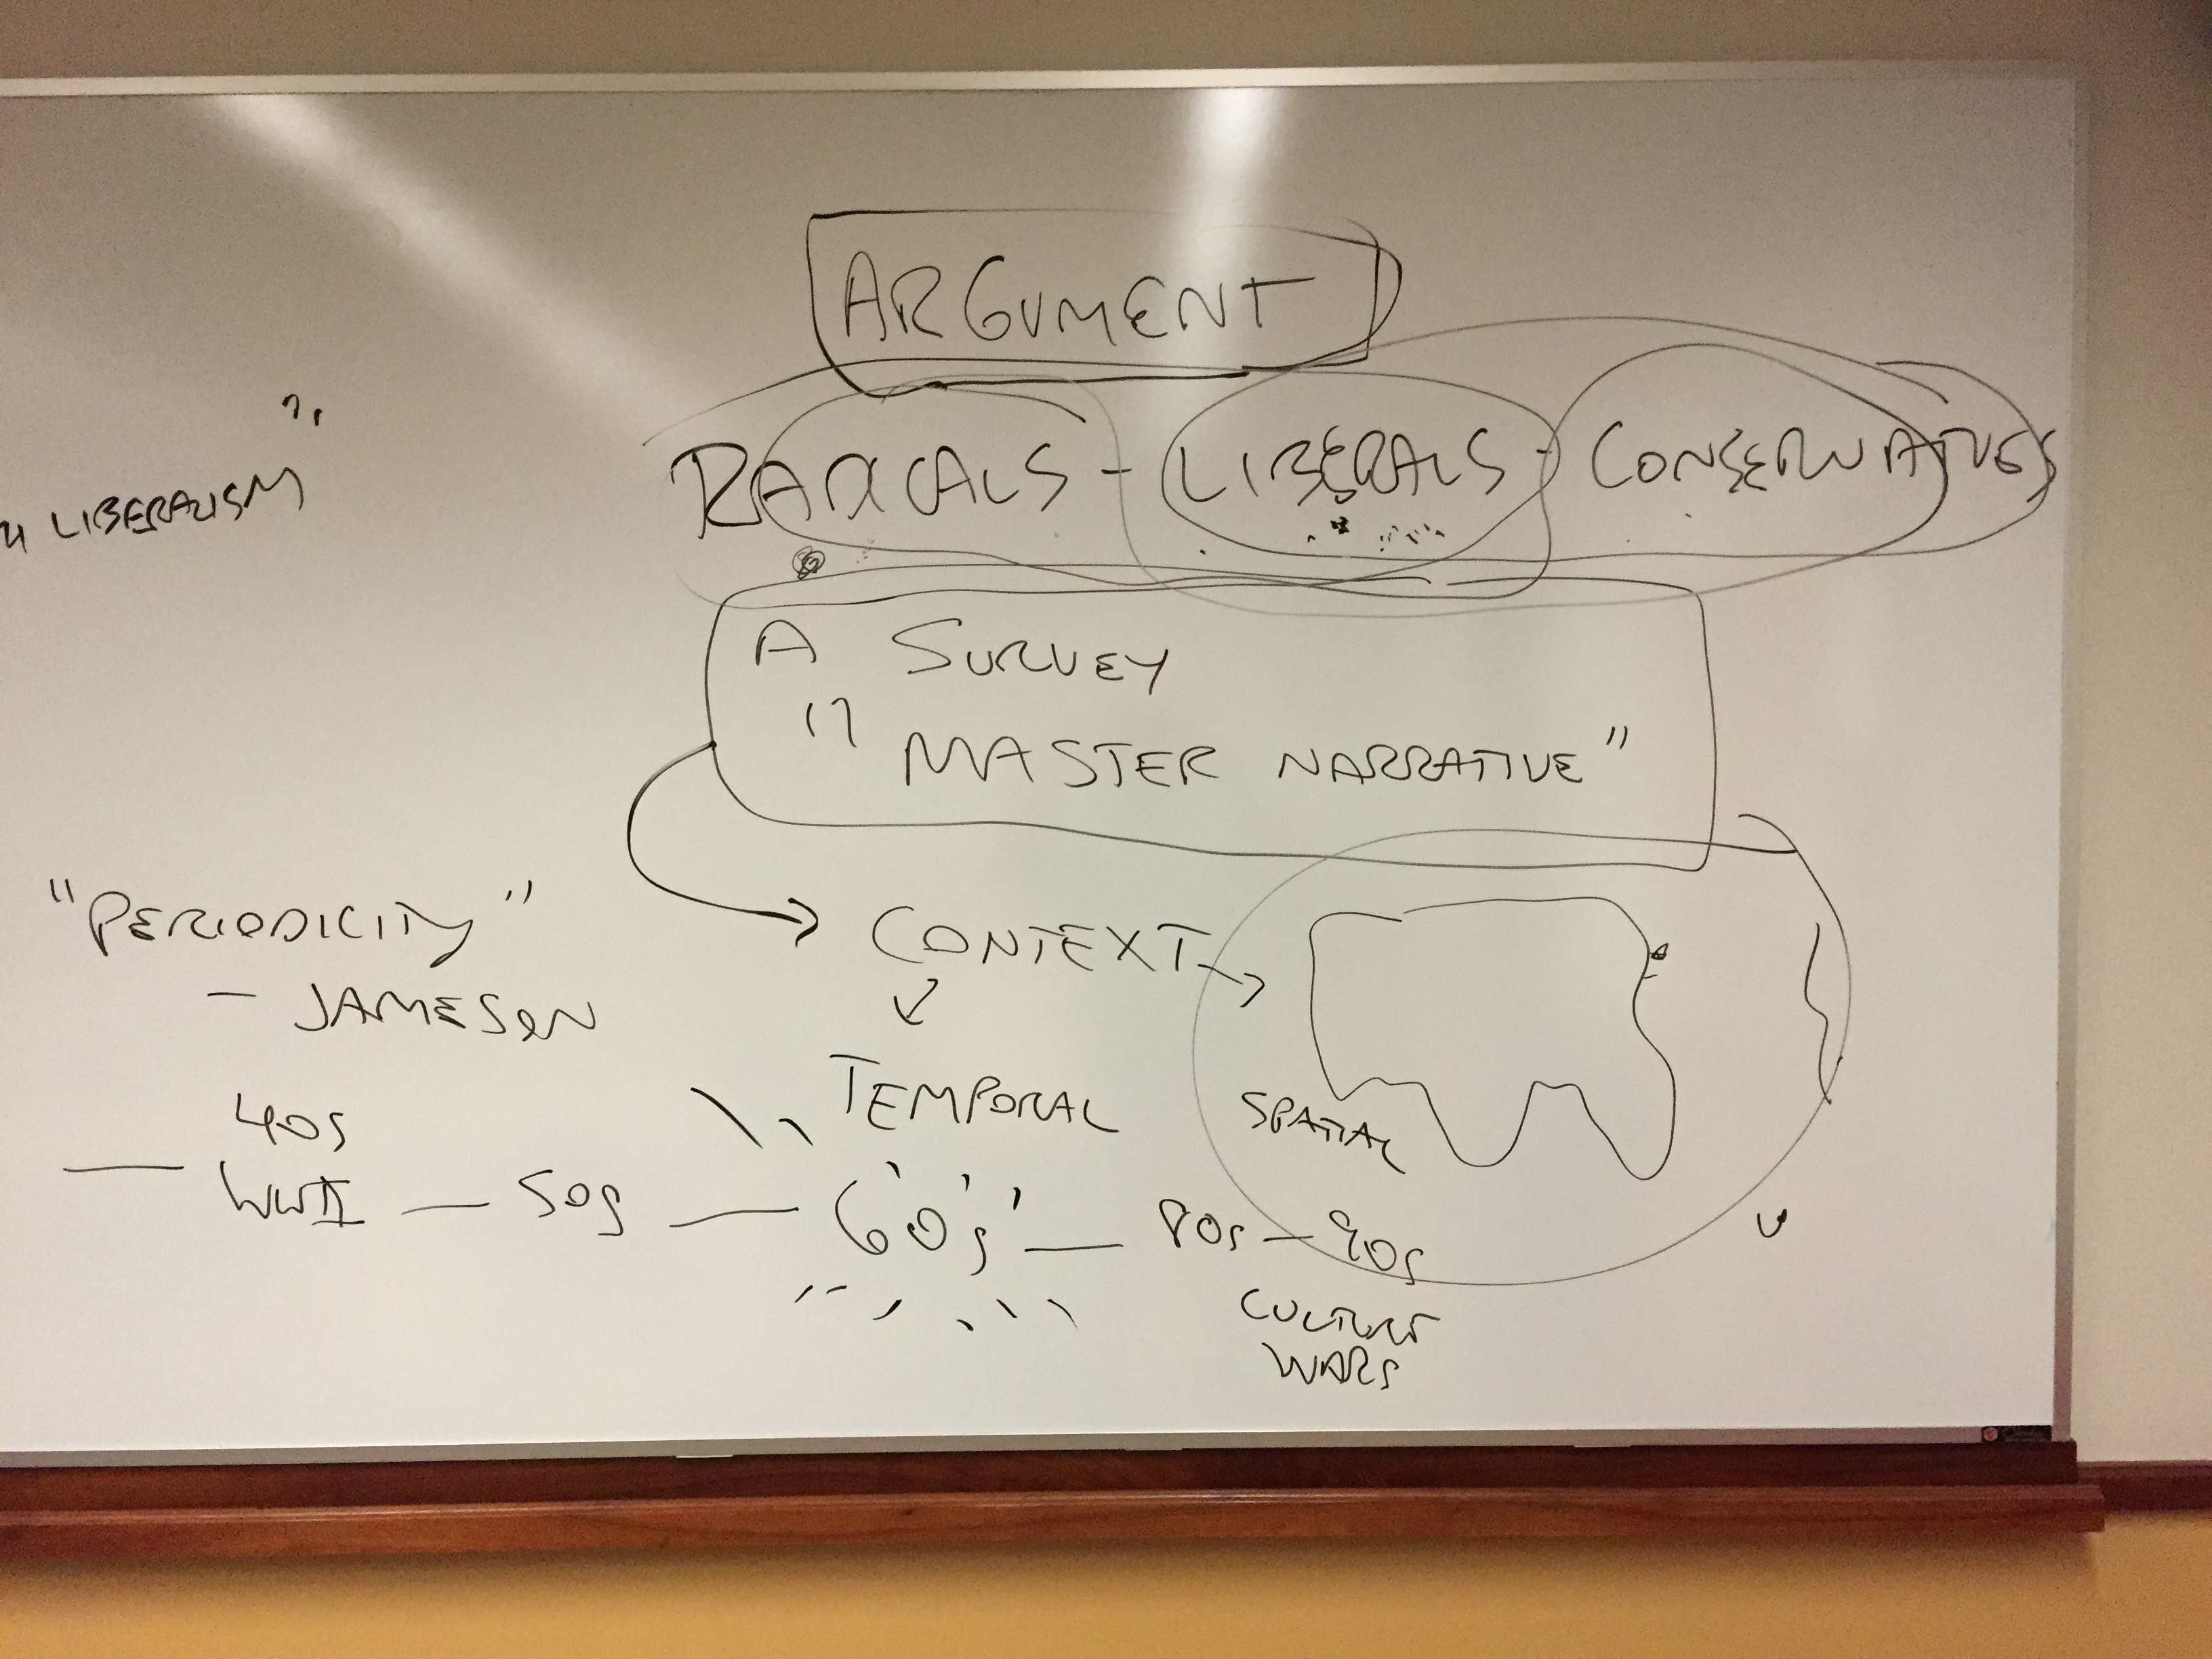 ARGUMENT
RADICALS - LIBERALS - CONSERVATIVES
LIBERALISM"
A SURVEY
" MASTER NARRATIVE "
"PERIODICITY"
- JAMESON
CONTEXT
TEMPORAL
SPATIAL
40s
— WWII — 50s — 60's — 80s — 90s
CULTURE
WARS